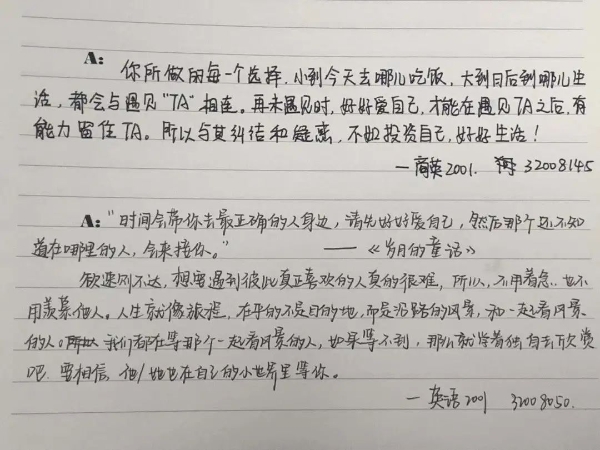 A:
你所做的每一个选择,小到今天去哪儿吃饭,大到日后到哪儿生
活,都会与遇见"TA"相连。再未遇见时,好好爱自己,才能在遇见TA之后,有
能力留住TA。所以与其纠结和疑惑,不如投资自己,好好生活!
—商英2001. 32008145
A:"时间会带你去最正确的人身边,请先好好爱自己,然后那个还不知
道在哪里的人,会来接你。" ——《岁月的童话》
欲速则不达,想要遇到彼此真正喜欢的人真的很难,所以,不用着急..也不
用羡慕他人。人生就像旅程,在乎的不是目的地,而是沿路的风景,和一起看风景
的人。我们都在等那个一起看风景的人,如果等不到,那么就学着独自去欣赏
吧.要相信,他/她也在自己的小世界里等你。
—英语2001 32008050.